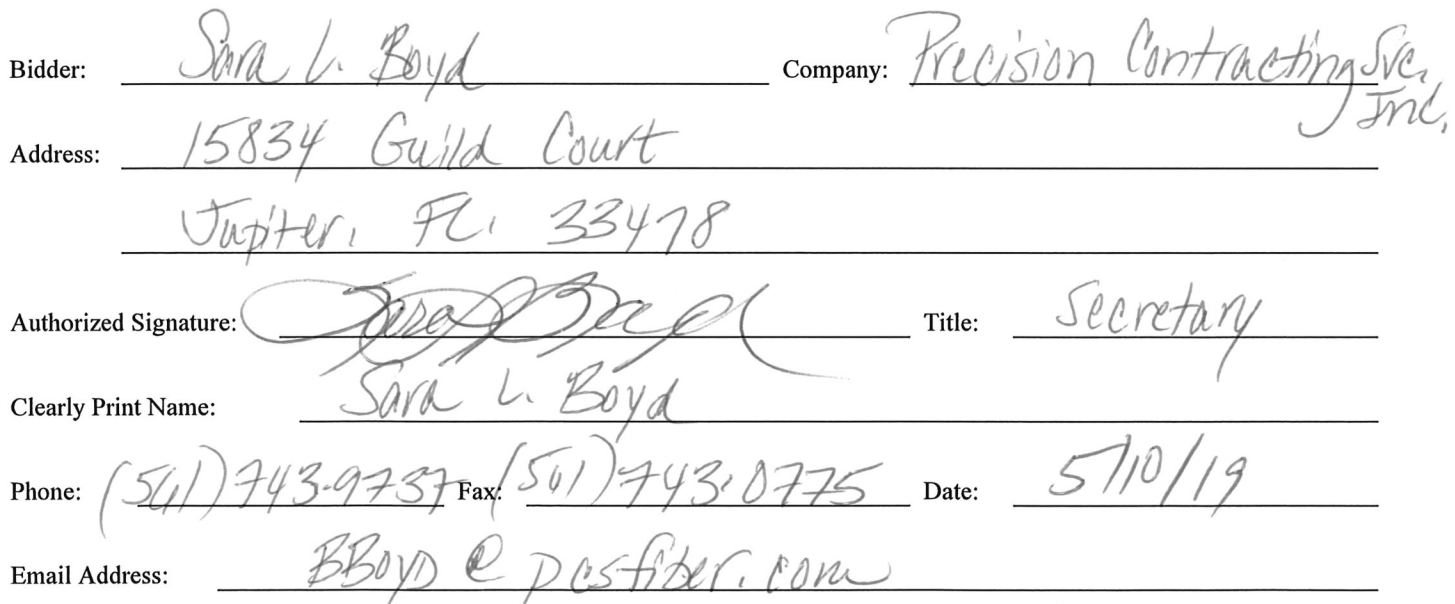 Bidder: Sara L. Boyd Company: Precision Contracting Svc.
Inc.
Address: 15834 Guild Court
Jupiter, FL. 33478
Authorized Signature: Sara L Boyd Title: Secretary
Clearly Print Name: Sara L. Boyd
Phone: (561) 743-9737 Fax: (561) 743-0775 Date: 5/10/19
Email Address: BBoyD @ pcsfiber.com